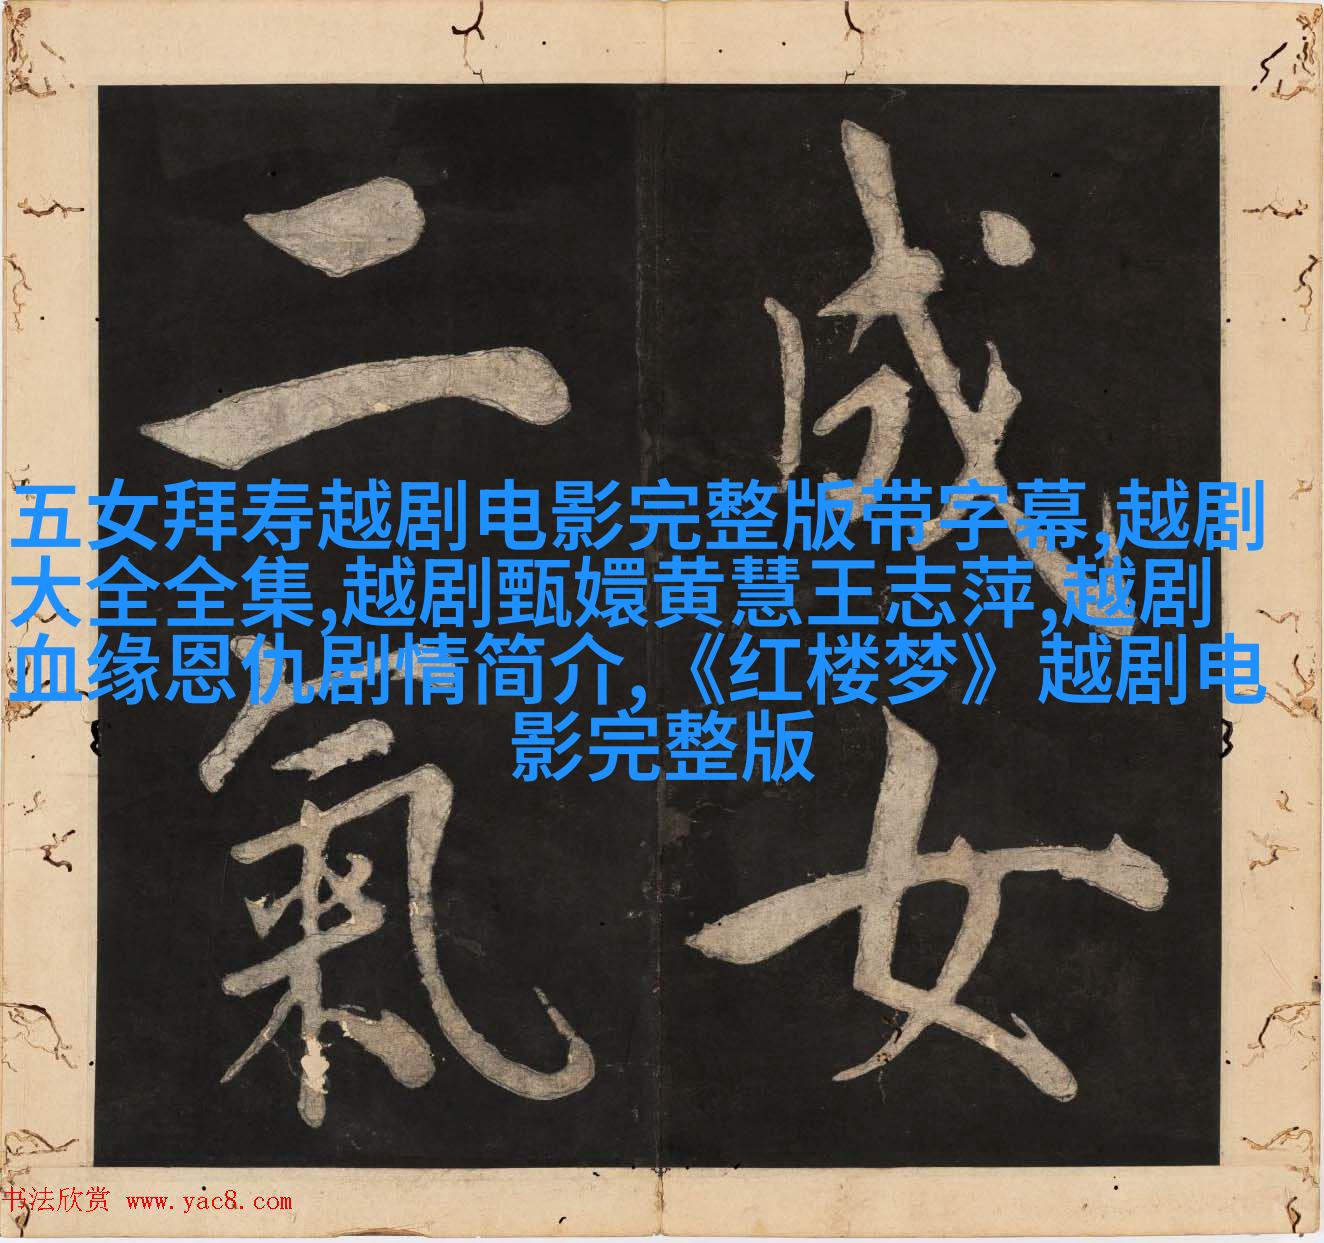 成女
二氣
五女拜寿越剧电影完整版带字幕,越剧
大全全集,越剧甄嬛黄慧王志萍,越剧
血缘恩仇剧情简介,《红楼梦》越剧电
影完整版
书法欣赏 www.yac8.com